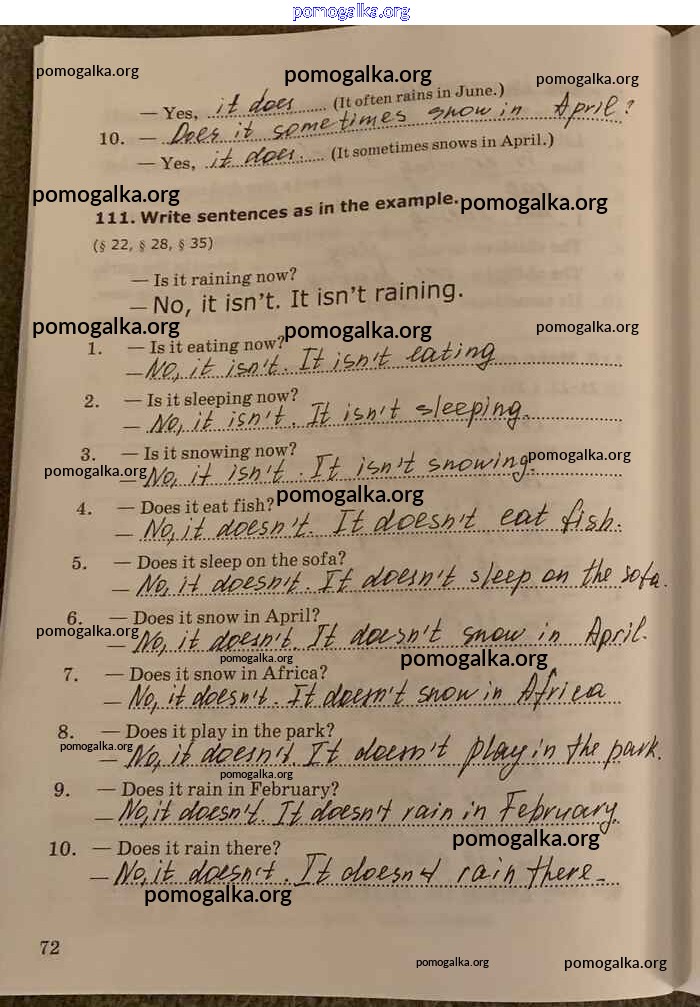 pomogalka.org
pomogalka.org pomogalka.org pomogalka.org
— Yes, it does (It often rains in June.)
10. — Does it sometimes snow in April?
— Yes, it does. (It sometimes snows in April.)
pomogalka.org pomogalka.org
111. Write sentences as in the example.
(§ 22, § 28, § 35)
— Is it raining now?
— No, it isn't. It isn't raining.
pomogalka.org pomogalka.org pomogalka.org
1. — Is it eating now?
— No, it isn't. It isn't eating
2. — Is it sleeping now?
— No, it isn't. It isn't sleeping.
3. — Is it snowing now?
pomogalka.org pomogalka.org
— No, it isn't. It isn't snowing.
pomogalka.org
4. — Does it eat fish?
— No, it doesn't. It doesn't eat fish.
5. — Does it sleep on the sofa?
— No, it doesn't. It doesn't sleep on the sofa.
6. — Does it snow in April?
pomogalka.org
— No, it doesn't. It doesn't snow in April.
pomogalka.org pomogalka.org
7. — Does it snow in Africa?
— No, it doesn't. It doesn't snow in Africa
8. — Does it play in the park?
pomogalka.org
— No, it doesn't It doesn't play in the park.
pomogalka.org
9. — Does it rain in February?
— No, it doesn't. It doesn't rain in February.
pomogalka.org
10. — Does it rain there?
— No, it doesn't. It doesn't rain there.
pomogalka.org
72
pomogalka.org pomogalka.org